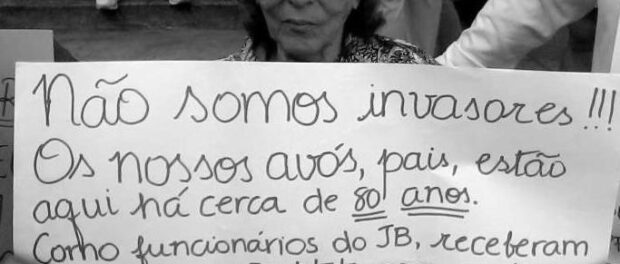 Não somos invasores!!!
Os nossos avós, pais, estão
aqui há cerca de 80 anos.
Como funcionários do JB, receberam